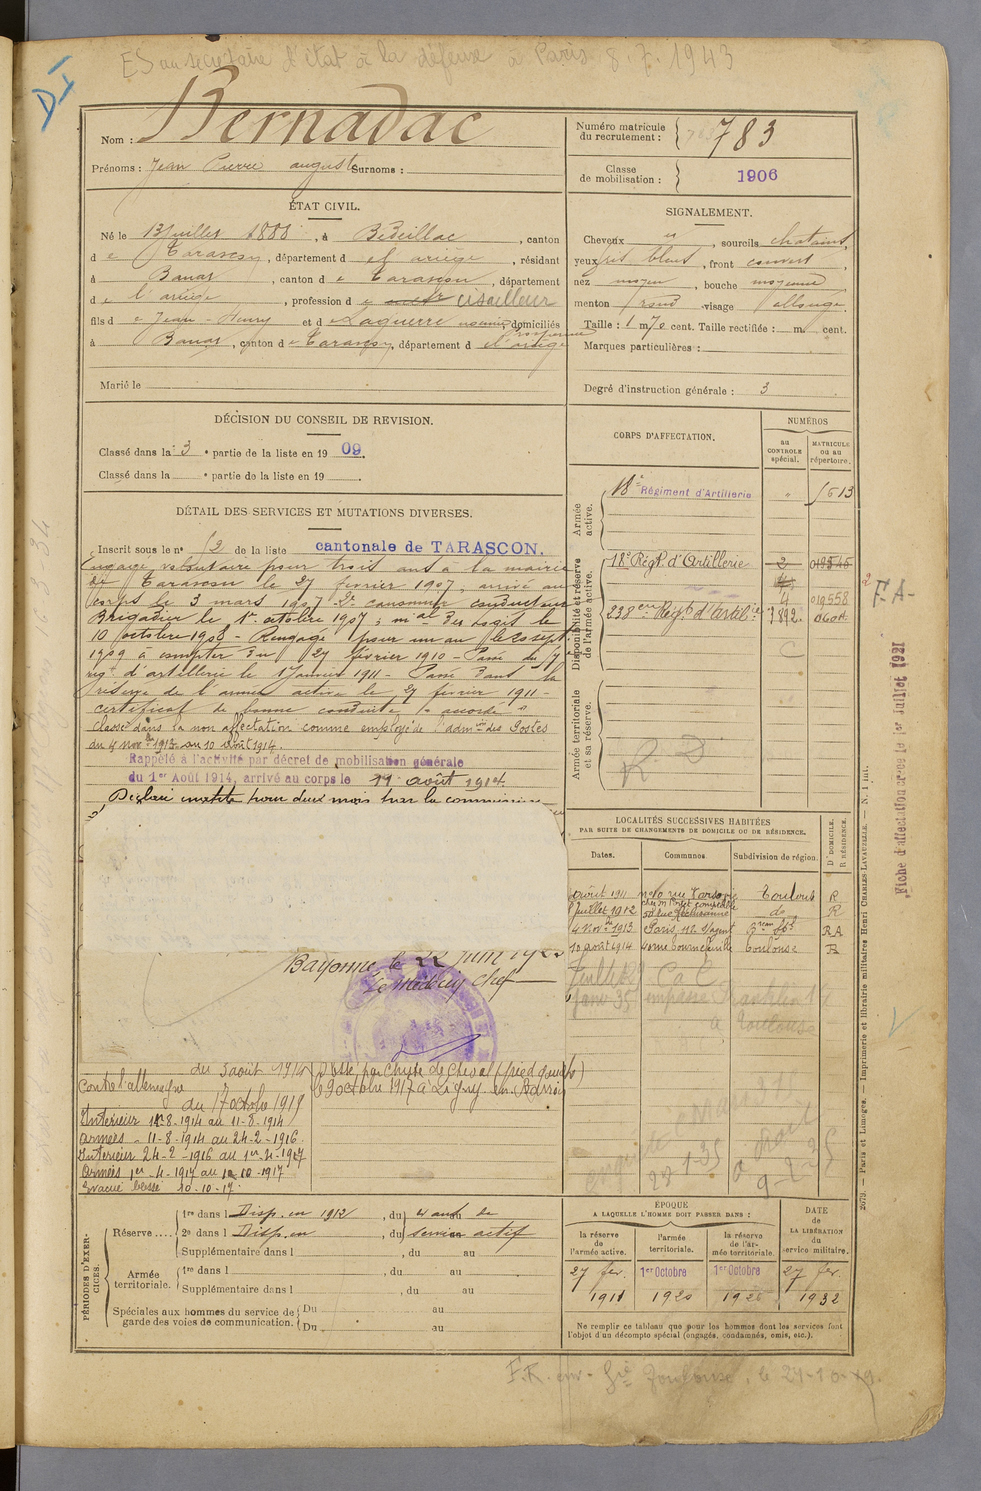 ES au secretaire d'état à la défense à Paris 8.7.1943
DI
Nom : Bernadac
Prénoms : Jean Pierre auguste Surnoms :
Numéro matricule du recrutement : 783
Classe de mobilisation : 1906
ÉTAT CIVIL.
Né le 13 Juillet 1888, à Bédeillac, canton
de Tarascon, département de l'ariège, résidant
à Banat, canton de Tarascon, département
de l'ariège, profession de ciseilleur
fils de Jean-Henry et de Laguerre domiciliés
à Banat, canton de Tarascon, département de l'ariège
Marié le
SIGNALEMENT.
Cheveux, sourcils chatains,
yeux bleus, front couvert,
nez moyen, bouche moyenne
menton rond visage allongé
Taille : 1 m 70 cent. Taille rectifiée : m cent.
Marques particulières :
Degré d'instruction générale : 3
DÉCISION DU CONSEIL DE REVISION.
Classé dans la 3e partie de la liste en 1909.
Classé dans la e partie de la liste en 19 .
DÉTAIL DES SERVICES ET MUTATIONS DIVERSES.
Inscrit sous le n° 12 de la liste cantonale de TARASCON.
Engagé volontaire pour trois ans à la mairie
de Tarascon le 27 février 1907, arrivé au
corps le 3 mars 1907 2e canonnier conducteur
Brigadier le 1er octobre 1907; mal des logis le
10 octobre 1908 - Rengagé pour un an le 20 sept.
1909 à compter du 27 février 1910 - Passé du
regt d'artillerie le 1 Janvier 1911 - Passé dans la
réserve de l'armée active le 27 février 1911 -
certificat de bonne conduite "accordé"
Classé dans la non affectation comme employé de l'admon des Postes
du 4 Nov. 1913 au 10 août 1914.
Rappelé à l'activité par décret de mobilisation générale
du 1er Août 1914, arrivé au corps le 11 août 1914.
Déclaré inapte pour deux mois par la commission
Bayonne, le 22 juin
Le Médecin Chef
Contre l'allemagne du 3 août 1914
du 17 octobre 1919
Intérieur 11-8-1914 au 11-8-1914
armées - 11-8-1914 au 24-2-1916
Intérieur 24-2-1916 au 1er-4-1917
Armées 1er-4-1917 au 10-10-1917
Evacué blessé 10-10-17.
Blessé par chute de cheval (pied gauche)
9 octobre 1917 à Ligny-en-Barrois
CORPS D'AFFECTATION.
NUMÉROS
au CONTROLE spécial.
MATRICULE ou au répertoire.
Armée active.
18e Régiment d'Artillerie " 1513
Disponibilité et réserve de l'armée active.
18e Régt d'Artillerie 2 019545
4 019558
238ème Régt d'Artillie 1892
C
Armée territoriale et sa réserve.
R D
F.A-
Fiche d'affectation créée le 1er Juillet 1921
LOCALITÉS SUCCESSIVES HABITÉES
PAR SUITE DE CHANGEMENTS DE DOMICILE OU DE RÉSIDENCE.
Dates. Communes. Subdivision de région. D DOMICILE. R RÉSIDENCE.
août 1911 no 10 rue Toulouse R
Juillet 1912 do R
4 Nov. 1913 Paris, RA
10 août 1914 Toulouse R
Janv 35 impasse
à Toulouse
enquête
28-1-35
9-2-35
PÉRIODES D'EXERCICES.
Réserve....
1re dans l Disp. en 1912, du 4 ans de
2e dans l Disp. en, du service actif
Supplémentaire dans l , du au
Armée territoriale.
1re dans l , du au
Supplémentaire dans l , du au
Spéciales aux hommes du service de garde des voies de communication.
Du au
Du au
ÉPOQUE
A LAQUELLE L'HOMME DOIT PASSER DANS :
la réserve de l'armée active.
l'armée territoriale.
la réserve de l'armée territoriale.
DATE de LA LIBÉRATION du service militaire.
27 fev. 1911
1er Octobre 1920
1er Octobre 1926
27 fev. 1932
Ne remplir ce tableau que pour les hommes dont les services font
l'objet d'un décompte spécial (engagés, condamnés, omis, etc.).
2679. — Paris et Limoges. — Imprimerie et librairie militaires Henri CHARLES-LAVAUZELLE. — N. 1 int.
Toulouse, le 27-10-